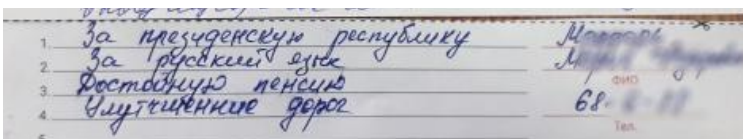 1. За президенскую республику
2. За русский язык
3. Достойную пенсию
4. Улутчиенние дорог
5.
ФИО
68-
Тел.